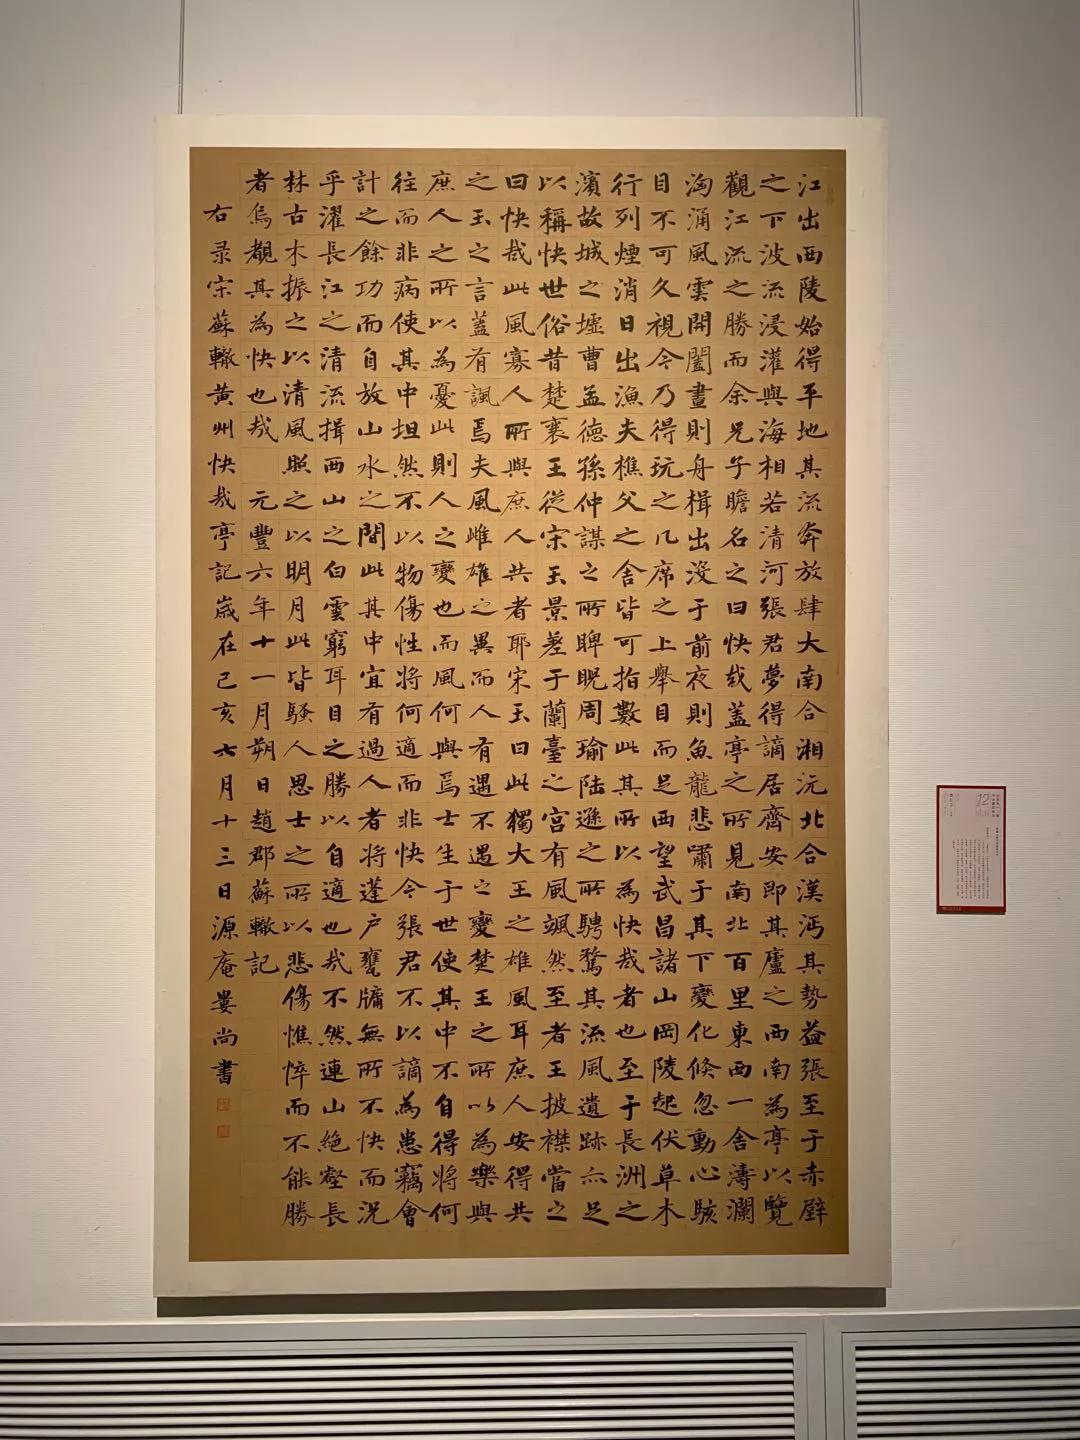 江出西陵始得平地其流奔放肆大南合湘沅北合漢沔其勢益張至于赤壁
之下波流浸灌與海相若清河張君夢得謫居齊安即其廬之西南為亭以覽
觀江流之勝而余兄子瞻名之曰快哉蓋亭之所見南北百里東西一舍濤瀾
洶涌風雲開闔晝則舟楫出没于前夜則魚龍悲嘯于其下變化倏忽動心駭
目不可久視今乃得玩之几席之上舉目而足西望武昌諸山岡陵起伏草木
行列煙消日出漁夫樵父之舍皆可指數此其所以為快哉者也至于長洲之
濱故城之墟曹孟德孫仲謀之所睥睨周瑜陸遜之所騁騖其流風遺跡亦足
以稱快世俗昔楚襄王從宋玉景差于蘭臺之宮有風颯然至者王披襟當之
曰快哉此風寡人所與庶人共者耶宋玉曰此獨大王之雄風耳庶人安得共
之玉之言蓋有諷焉夫風雌雄之異而人有遇不遇之變楚王之所以為樂與
庶人之所以為憂此則人之變也而風何與焉士生于世使其中不自得將何
往而非病使其中坦然不以物傷性將何適而非快今張君不以謫為患竊會
計之餘功而自放山水之間此其中宜有過人者將蓬户甕牖無所不快而況
乎濯長江之清流揖西山之白雲窮耳目之勝以自適也哉不然連山絕壑長
林古木振之以清風照之以明月此皆騷人思士之所以悲傷憔悴而不能勝
者烏覩其為快也哉 元豐六年十一月朔日趙郡蘇轍記
右录宋蘇轍黄州快哉亭記歲在己亥六月十三日源庵婁尚書
12